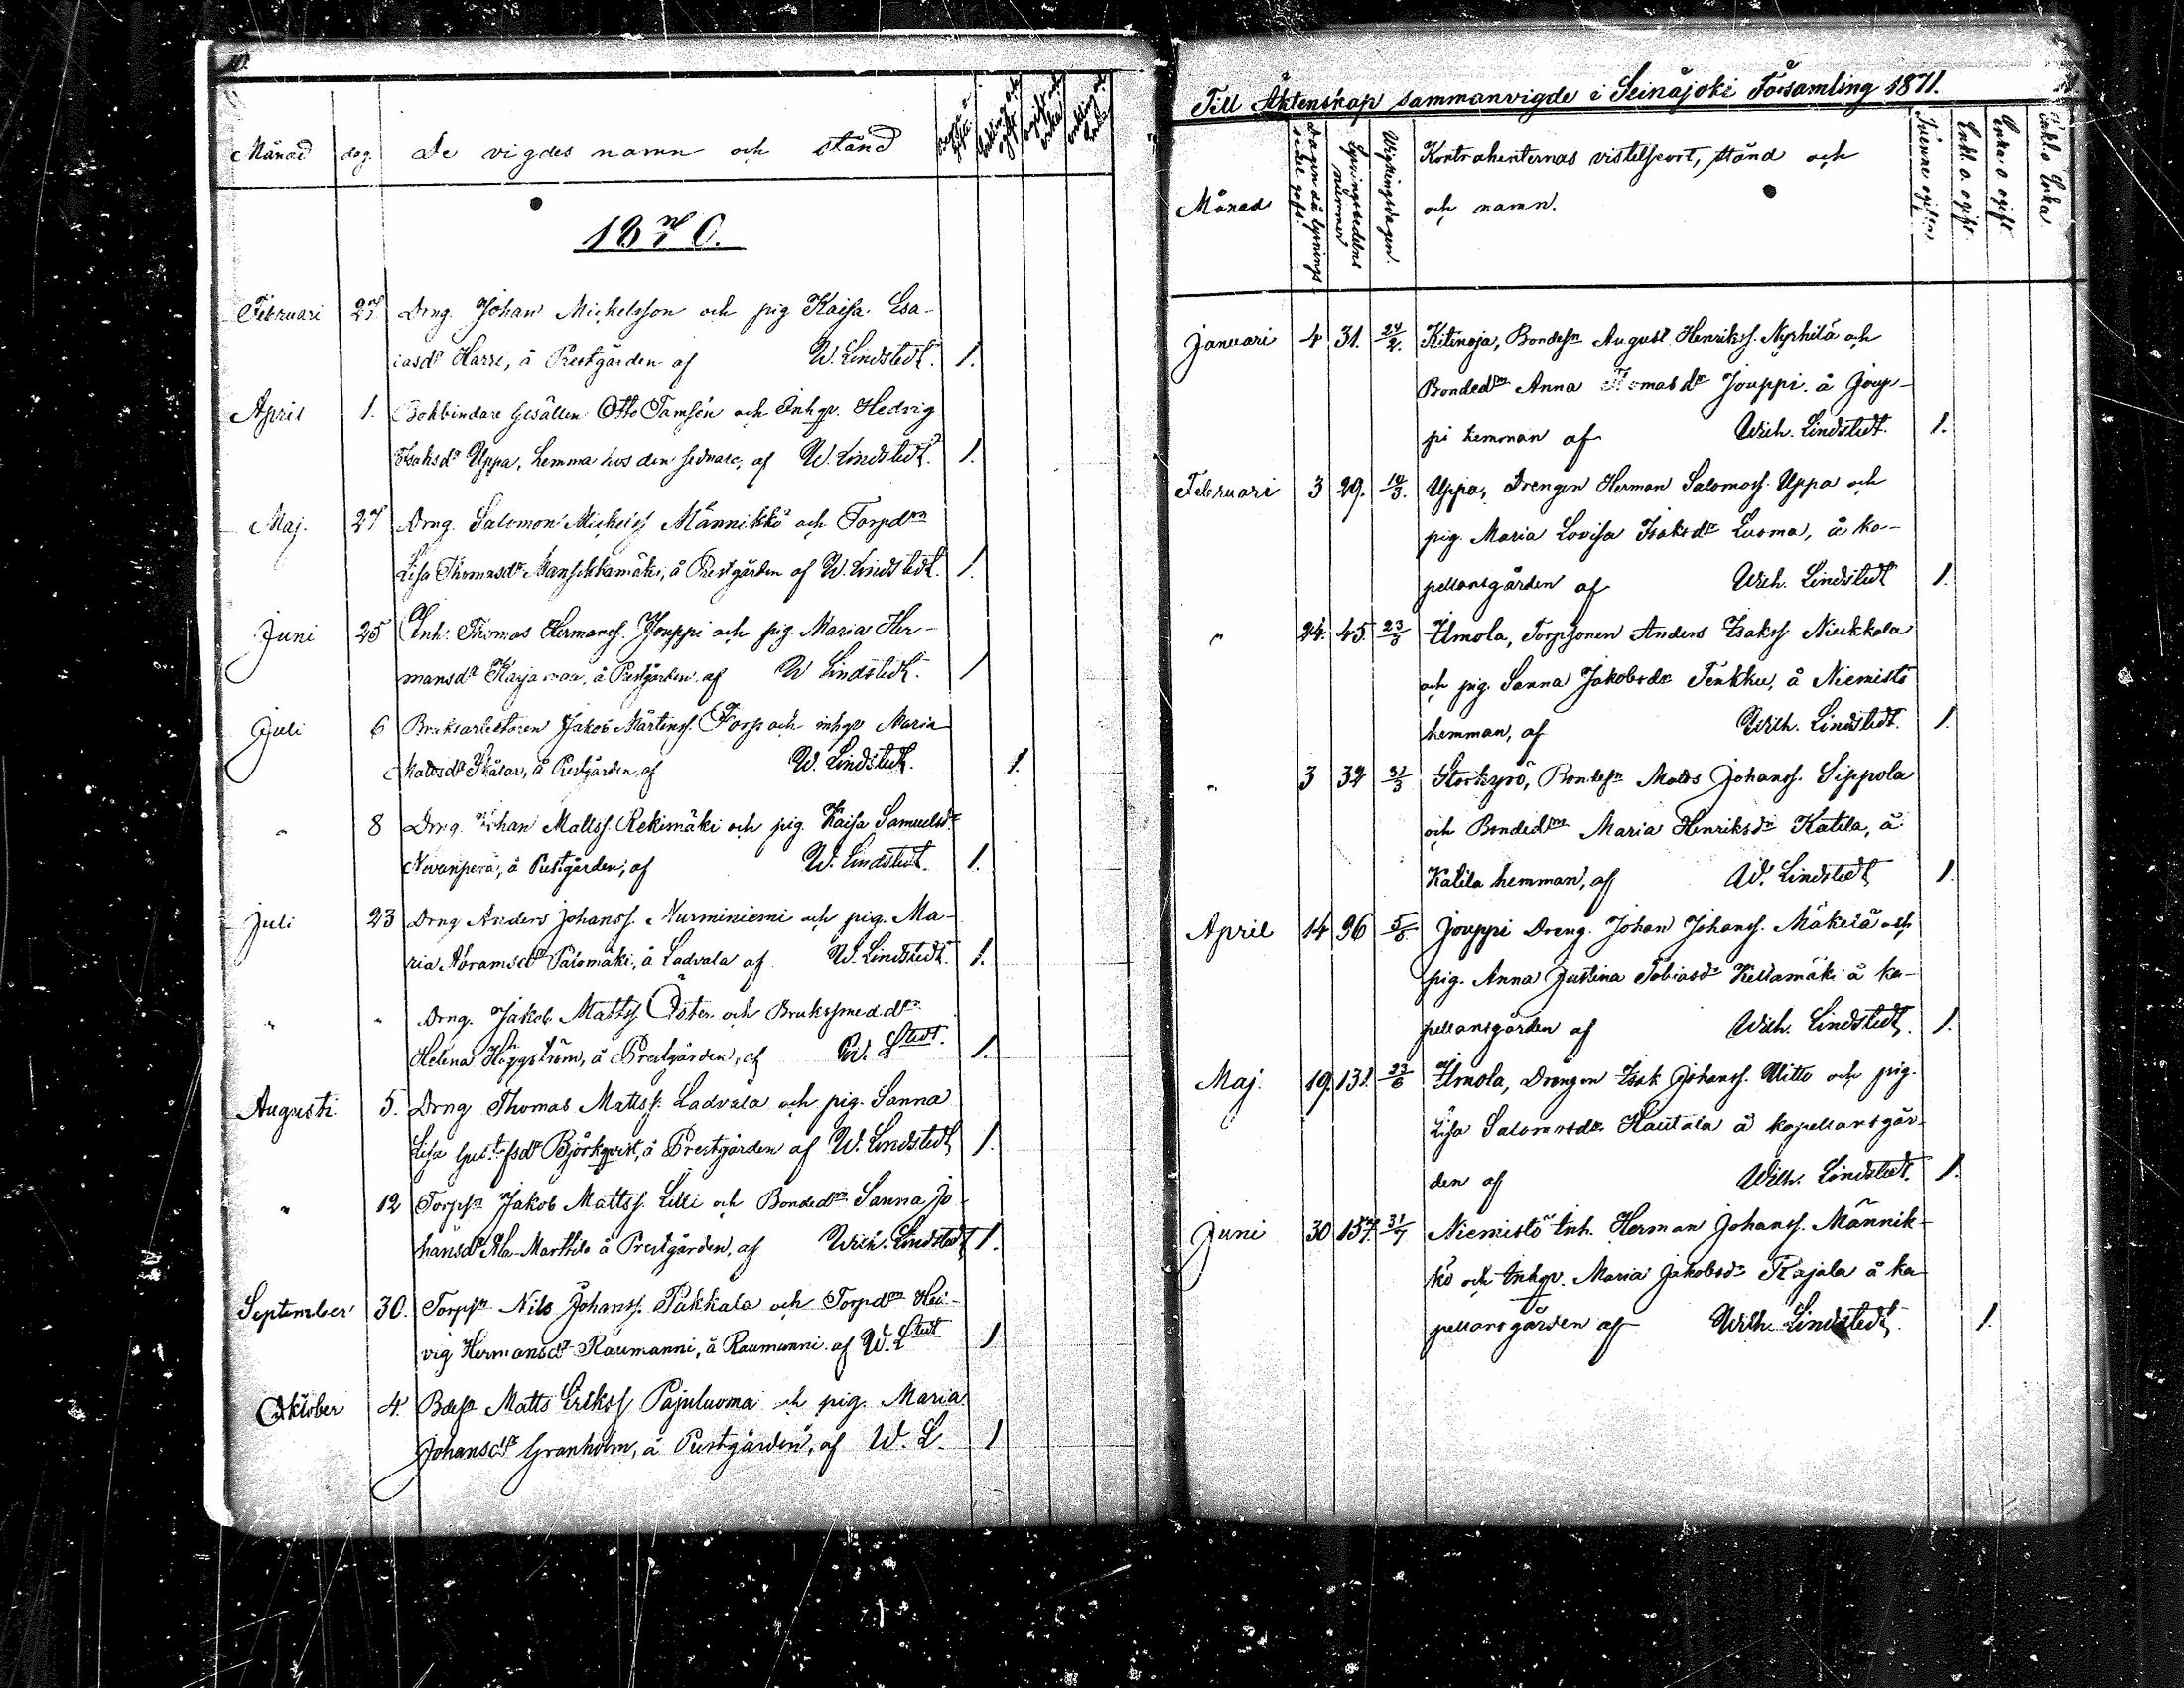 10.
Månad dag. De vigdes namn och stånd
1870.
Februari 27. Drng. Johan Michelsson och pig Kaisa Esa-
iasdr Harri, å Prestgården af W. Lindstedt. 1.
April 1. Bokbindare Gesällen Otto Tamsén och Inhqv. Hedvig
Isaksdr Uppa, hemma hos den sednare, af W. Lindstedt. 1.
Maj. 27 Drng. Salomon Michelss Männikkö och Torpdrn
Lisa Thomasdr Mansikkamäki, å Prestgården af W. Lindstedt. 1.
Juni 25 Inh. Thomas Hermanss. Jouppi och pig. Maria Her-
mansdr, å Prestgården af W Lindstedt. 1
Juli 6 Bruksarbetaren Jakob Mårtenss. Fors och inhqv Maria
Mattsdr, å Prestgården, af W. Lindstedt. 1.
" 8 Drng. Johan Mattss. Rekimäki och pig. Kaisa Samuelsdr
Nevanperä, å Prestgården, af W. Lindstedt. 1.
Juli 23 Drng Anders Johanss. Nurminiemi och pig. Ma-
ria Abramsdr Palomäki, å Ladvala af W. Lindstedt. 1.
" " Drng. Jakob Mattss. Öster och Bruksmeddr
Helena Häggström, å Prestgården, af W. Lstedt. 1.
Augusti 5. Drng Thomas Mattss. Ladvala och pig. Sanna
Lisa Gustafsdr Björkqvist, å Prestgården af W. Lindstedt 1.
" 12 Torpsn Jakob Mattss. Lilli och Bondedrn Sanna Jo
hansdr Ala-Marttila å Prestgården, af Wilh. Lindstedt 1.
September 30. Torpsn Nils Johanss. Pakkala och Torpdrn Hed-
vig Hermansdr Raumanni, å Raumanni af W. Lstedt 1
Oktober 4. Bdesn Matts Erikss Pajuluoma och pig. Maria
Johansdr Granholm, å Prestgården, af W. L. 1
Till Äktenskap sammanvigde i Seinäjoki Församling 1871.
Månad Dagen då lysnings sedel gafs. Lysningssedelns nummer Vigningsdagen. Kontrahenternas vistelseort, stånd och
och namn. Tvenne ogifta Enkl. o. ogift Enka o. ogift Enkl. o Enka
Januari 4 31. Kitinoja, Bondesn August Henrikss. Nyrhilä och
Bondedrn Anna Thomasdr Jouppi å Joup-
pi hemman af Wilh. Lindstedt. 1.
Februari 3 29. 10/3. Uppa, Drengen Herman Salomonss. Uppa och
pig. Maria Lovisa Isaksdr Luoma, å ka-
pellansgården af Wilh. Lindstedt 1.
" 24. 45. 23/3 Ilmola, Torpsonen Anders Isakss Niukkala
och pig. Sanna Jakobsdr Tenkku, å Niemistö
hemman, af Wilh. Lindstedt. 1.
" 3 32 31/3 Storkyrö, Bondesn Matts Johanss. Sippola
och Bondedrn Maria Henriksdr Katila, å
Katila hemman, af W. Lindstedt 1.
April 14 96 Jouppi Dreng. Johan Johanss. Mäkelä och
pig. Anna Justina Tobiasdr Keltamäki å ka-
pellansgården af Wilh. Lindstedt. 1.
Maj. 19. 131. 23/6 Ilmola, Drengen Isak Johanss. Uitto och pig.
Lisa Salomonsdr Hautala å kapellansgår-
den af Wilh. Lindstedt. 1.
Juni 30 157. 31/7 Niemistö Inh. Herman Johanss. Männik-
kö och Inhqv. Maria Jakobsdr Rajala å ka
pellansgården af Wilh Lindstedt. 1.